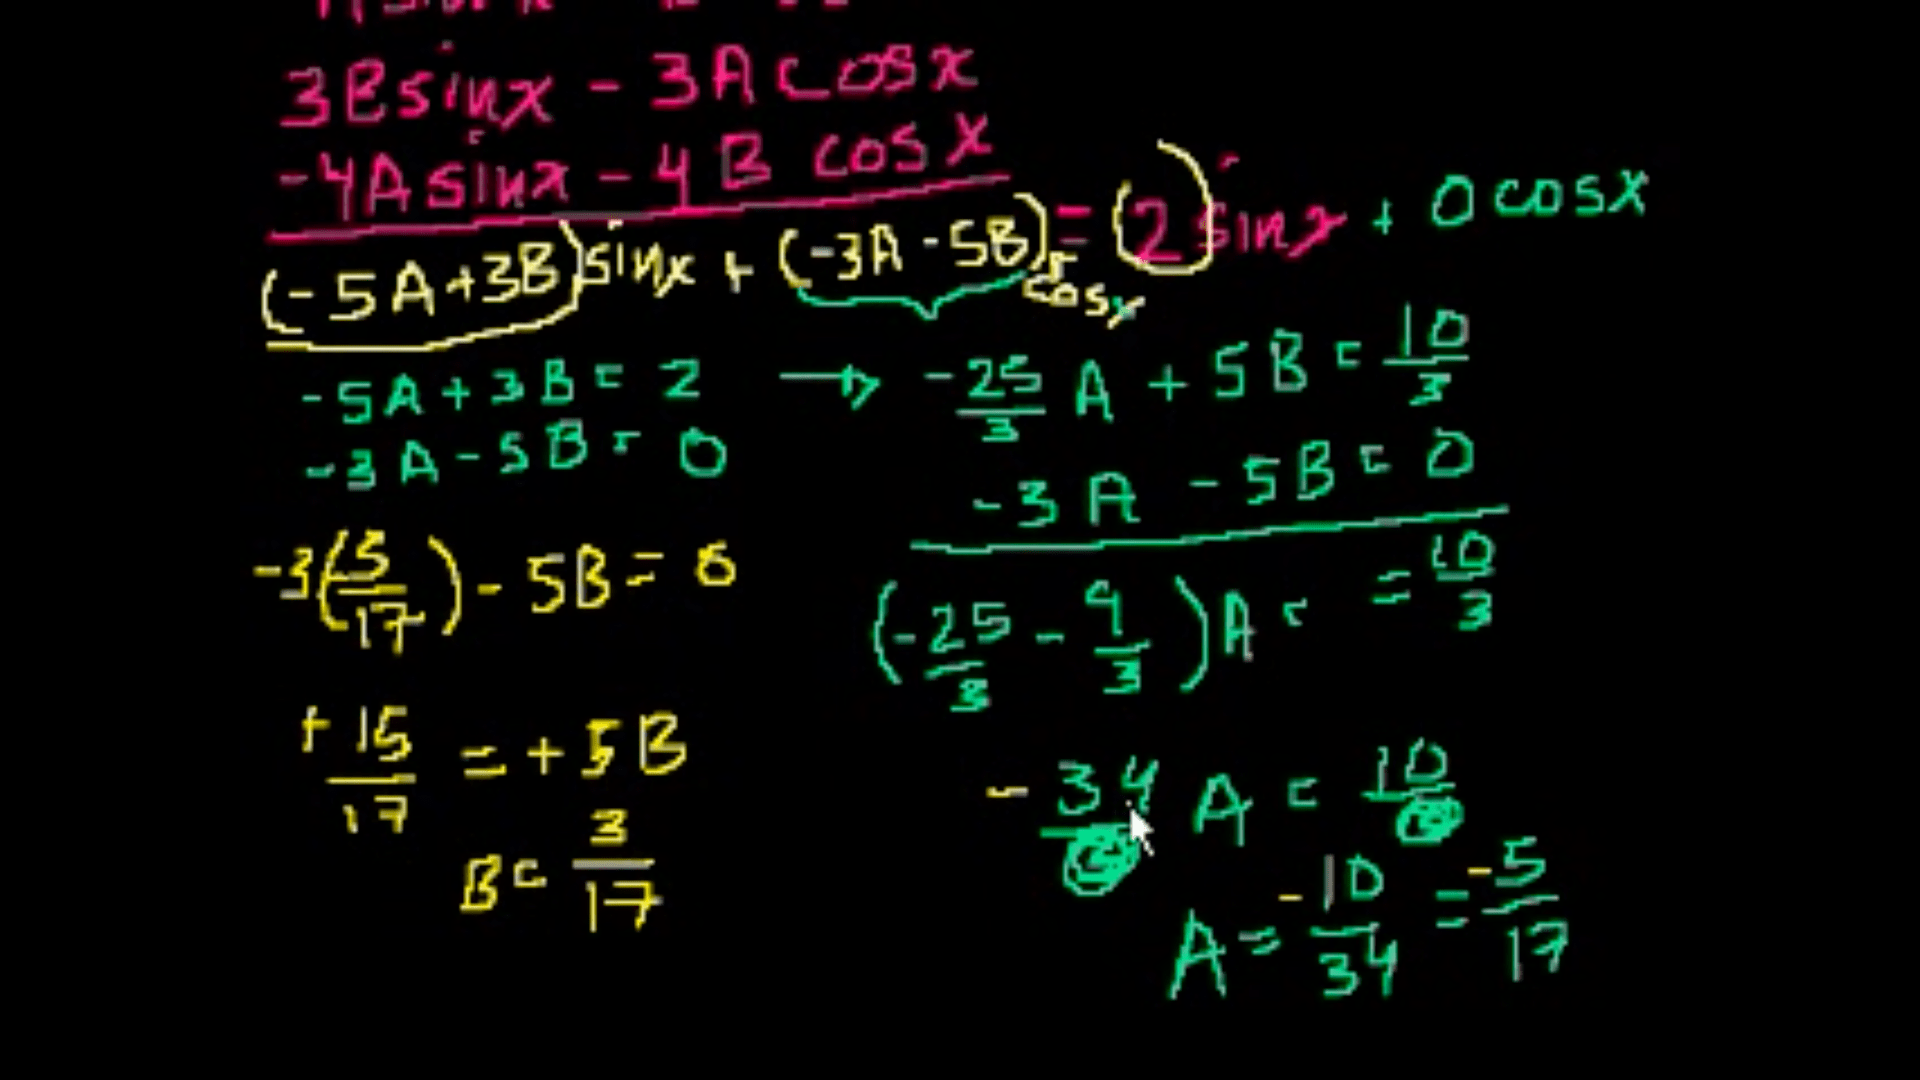 3Bsinx - 3A cosx
-4A sinx - 4B cosx
(-5A+3B)sinx + (-3A-5B)cosx = (2)sinx + 0 cosx
-5A+3B = 2 → -25/3 A + 5B = 10/3
-3A-5B = 0
-3A - 5B = 0
-3(5/17) - 5B = 0
(-25/3 - 9/3)A = = 10/3
+15/17 = +5B
-34/3 A = 10/3
B = 3/17
A = -10/34 = -5/17